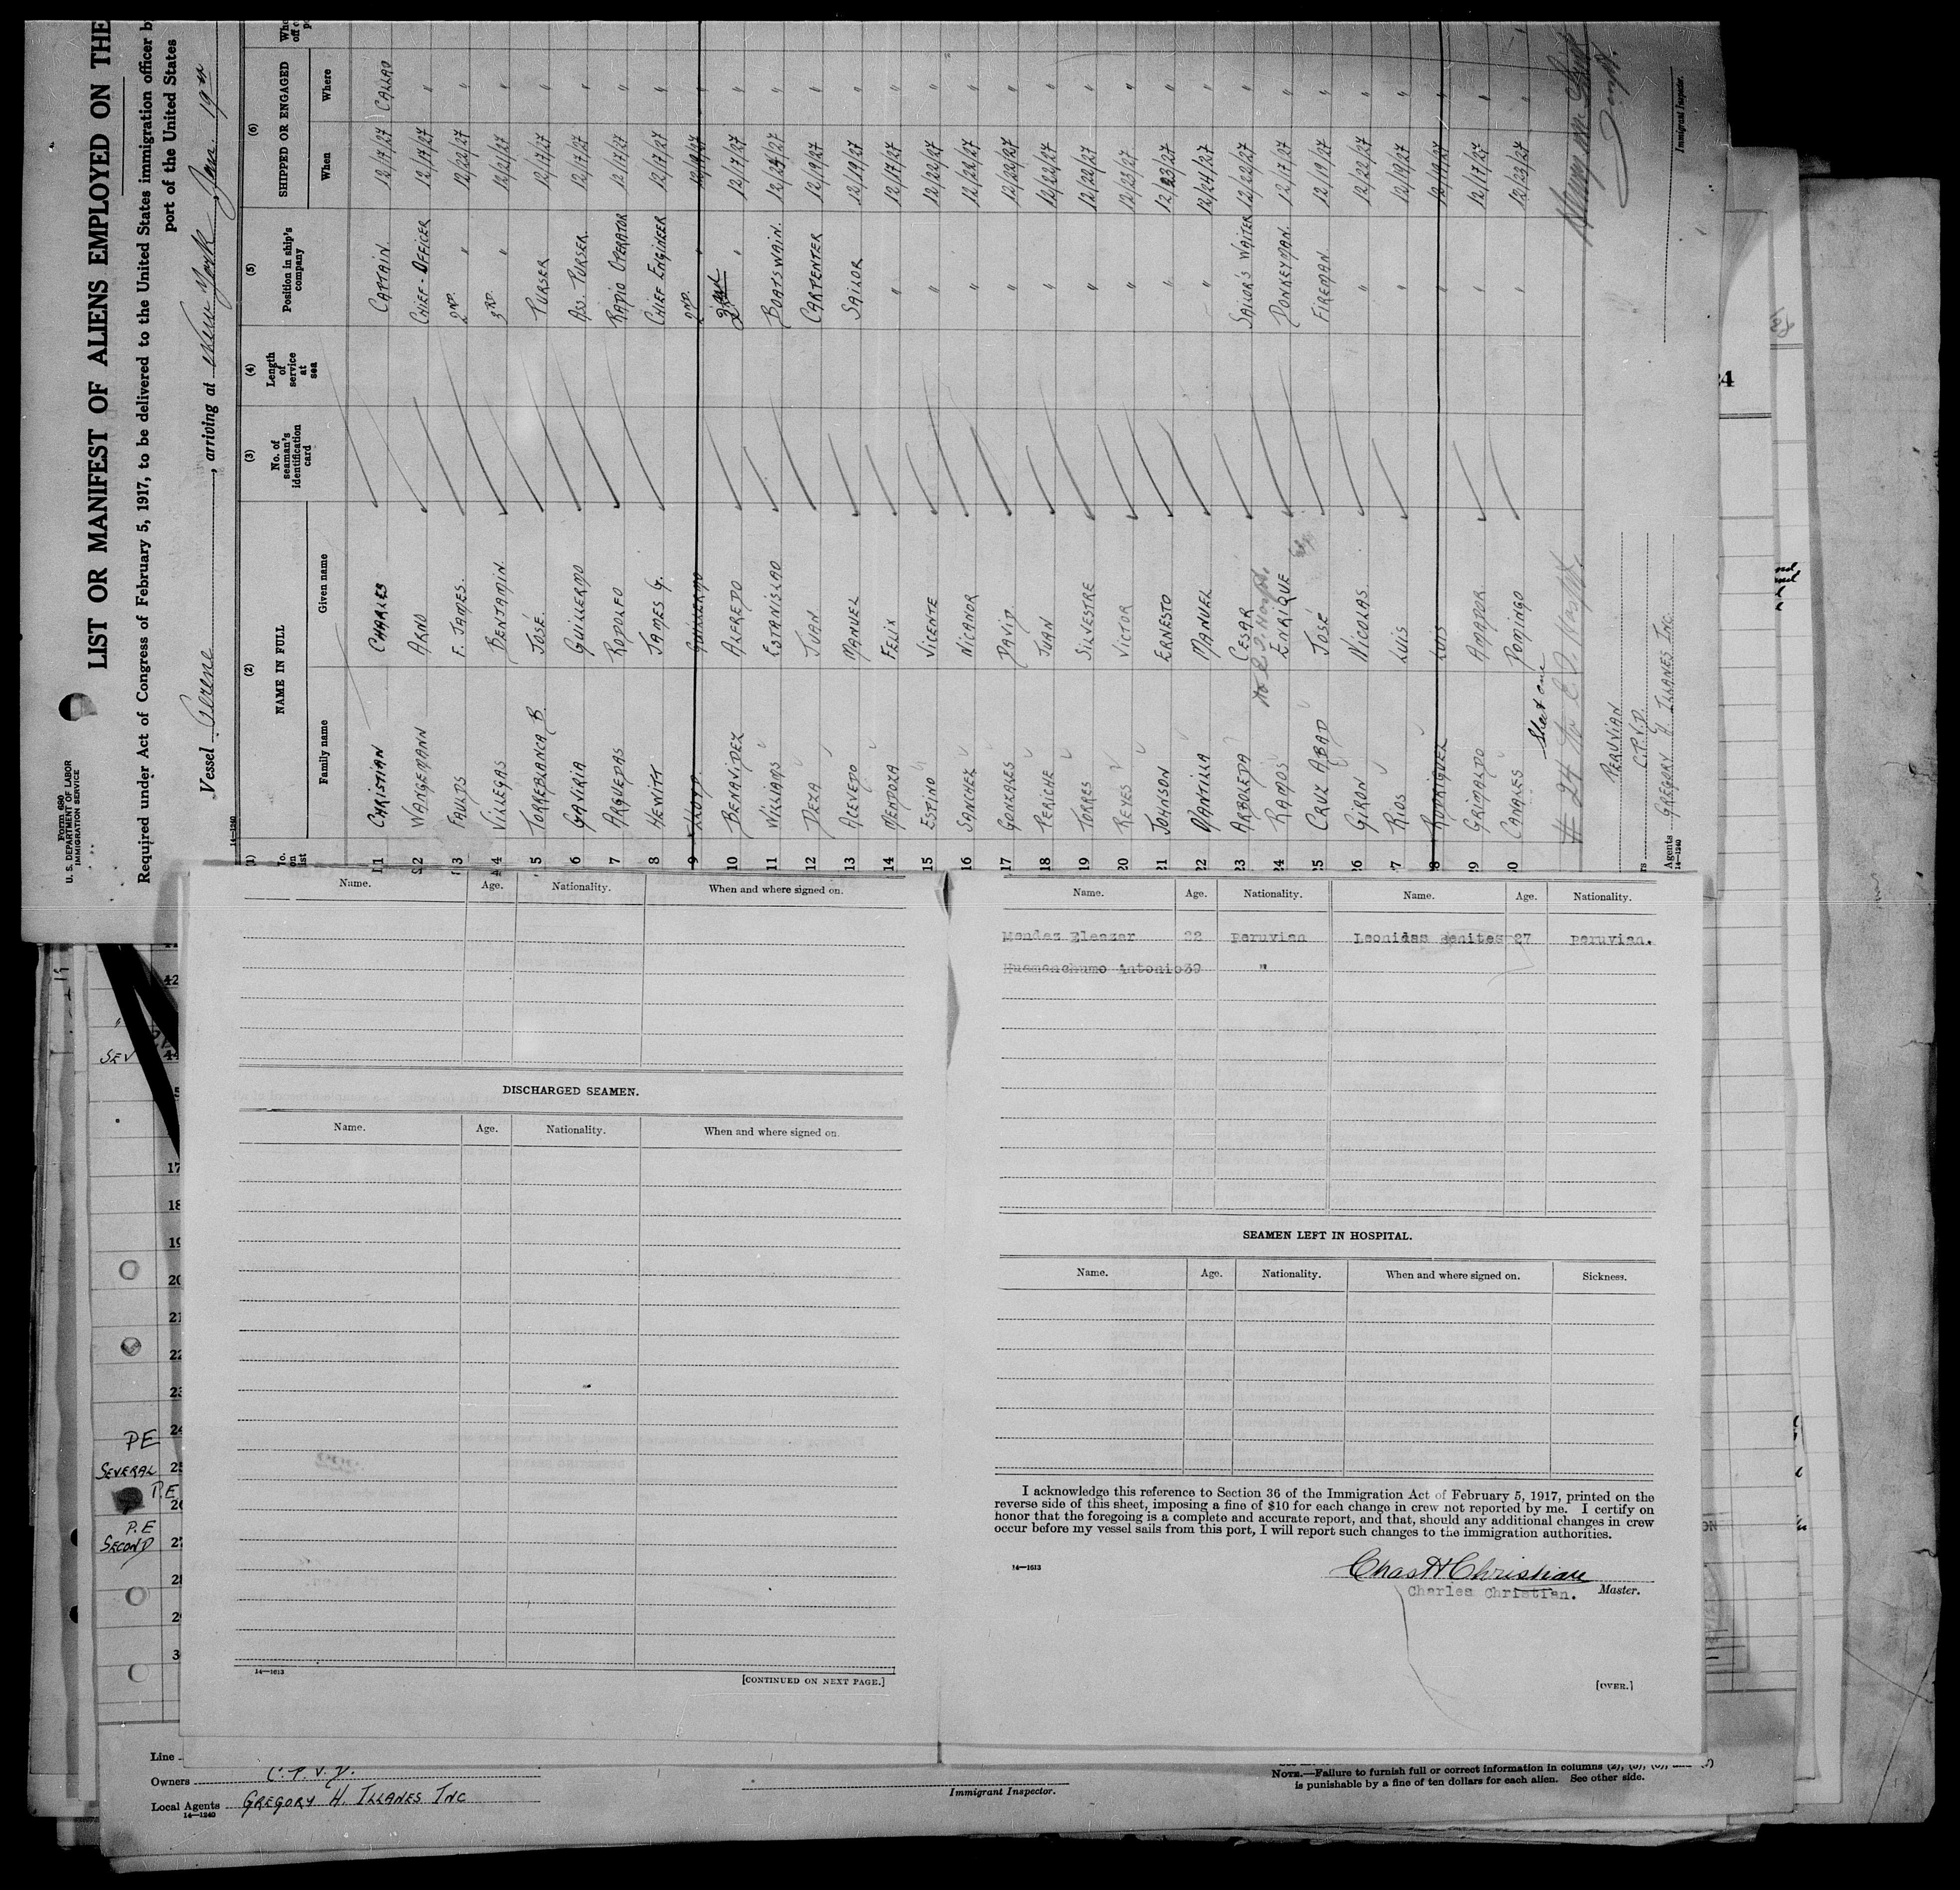 Form 680
U. S. DEPARTMENT OF LABOR
IMMIGRATION SERVICE
LIST OR MANIFEST OF ALIENS EMPLOYED ON THE
Required under Act of Congress of February 5, 1917, to be delivered to the United States immigration officer b
port of the United States
Vessel Perene, arriving at New York Jan. 19th
14—1240
(1) (2) (3) (4) (5) (6)
NAME IN FULL
No. of seaman's identification card
Length of service at sea
Position in ship's company
SHIPPED OR ENGAGED
Family name Given name When Where
1 CHRISTIAN CHARLES CAPTAIN 12/17/27 CALLAO
2 WANGEMANN ARNO CHIEF-OFFICER 12/17/27 "
3 FAULDS F. JAMES. 2ND. " 12/22/27 "
4 VILLEGAS BENJAMIN. 3RD. " 12/21/27 "
5 TORREBLANCA B. JOSÉ. PURSER 12/17/27 "
6 GAVIRIA GUILLERMO ASS. PURSER 12/17/27 "
7 ARGUEDAS RODOLFO RADIO OPERATOR 12/17/27 "
8 HEWITT JAMES G. CHIEF ENGINEER 12/17/27 "
9 GUILLERMO 2ND. " 12/19/27 "
10 BENAVIDEZ ALFREDO " 12/17/27 "
11 WILLIAMS ESTANISLAO BOATSWAIN. 12/24/27 "
12 DEZA JUAN CARPENTER 12/19/27 "
13 ACEVEDO MANUEL SAILOR 12/19/27 "
14 MENDOZA FELIX " 12/17/27 "
15 ESTINO VICENTE " 12/20/27 "
16 SANCHEZ NICANOR " 12/22/27 "
17 GONZALES DAVID. " 12/22/27 "
18 PERICHE JUAN " 12/22/27 "
19 TORRES SILVESTRE " 12/22/27 "
20 REYES VICTOR " 12/23/27 "
21 JOHNSON ERNESTO " 12/23/27 "
22 MANTILLA MANUEL " 12/24/27 "
23 ARBOLEDA CESAR SAILOR'S WAITER 12/22/27 "
24 RAMOS ENRIQUE DONKEYMAN 12/17/27 "
25 CRUZ ABAD JOSÉ FIREMAN. 12/19/27 "
26 GIRON NICOLAS. " 12/22/27 "
27 RIOS LUIS " 12/19/27 "
28 RODRIGUEZ LUIS " 12/19/27 "
29 GRIMALDO AMADOR. " 12/17/27 "
30 CANALES DOMINGO " 12/23/27 "
Sheet one
PERUVIAN
C.P.V.D.
Agents GREGORY H ILLANES INC.
14—1240
Immigrant Inspector.
Name. Age. Nationality. When and where signed on.
DISCHARGED SEAMEN.
Name. Age. Nationality. When and where signed on.
14—1613
[CONTINUED ON NEXT PAGE.]
Name. Age. Nationality. Name. Age. Nationality.
Mendez Eleazar 22 peruvian Leonidas Benites 27 peruvian.
Huamanchumo Antonio 39 "
SEAMEN LEFT IN HOSPITAL.
Name. Age. Nationality. When and where signed on. Sickness.
I acknowledge this reference to Section 36 of the Immigration Act of February 5, 1917, printed on the
reverse side of this sheet, imposing a fine of $10 for each change in crew not reported by me. I certify on
honor that the foregoing is a complete and accurate report, and that, should any additional changes in crew
occur before my vessel sails from this port, I will report such changes to the immigration authorities.
14—1613
Chas H Christian
Charles Christian. Master.
[OVER.]
SEV
PE
SEVERAL
P.E
P.E
SECOND
17
18
19
20
21
22
23
24
25
26
27
Line
Owners C.P.V.D.
Local Agents GREGORY H. ILLANES INC
14—1240
Immigrant Inspector.
NOTE.—Failure to furnish full or correct information in columns
is punishable by a fine of ten dollars for each alien. See other side.